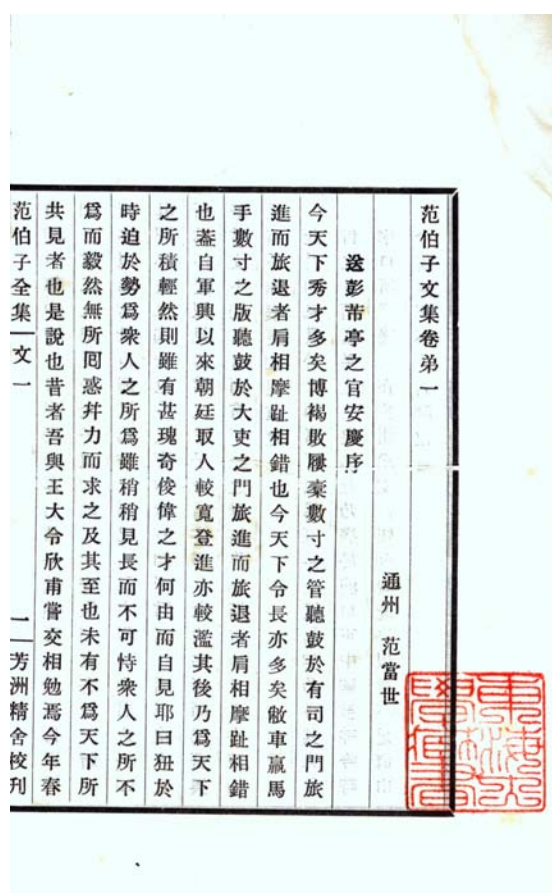 范伯子文集卷弟一
通州 范當世
送彭芾亭之官安慶序
今天下秀才多矣博褐敗屨橐數寸之管聽鼓於有司之門旅
進而旅退者肩相摩趾相錯也今天下令長亦多矣敝車羸馬
手數寸之版聽鼓於大吏之門旅進而旅退者肩相摩趾相錯
也蓋自軍興以來朝廷取人較寬登進亦較濫其後乃爲天下
之所積輕然則雖有甚瑰奇俊偉之才何由而自見耶曰狃於
時迫於勢爲衆人之所爲雖稍稍見長而不可恃衆人之所不
爲而毅然無所囘惑幷力而求之及其至也未有不爲天下所
共見者也是說也昔者吾與王大令欣甫嘗交相勉焉今年春
范伯子全集 文一 一 芳洲精舍校刊